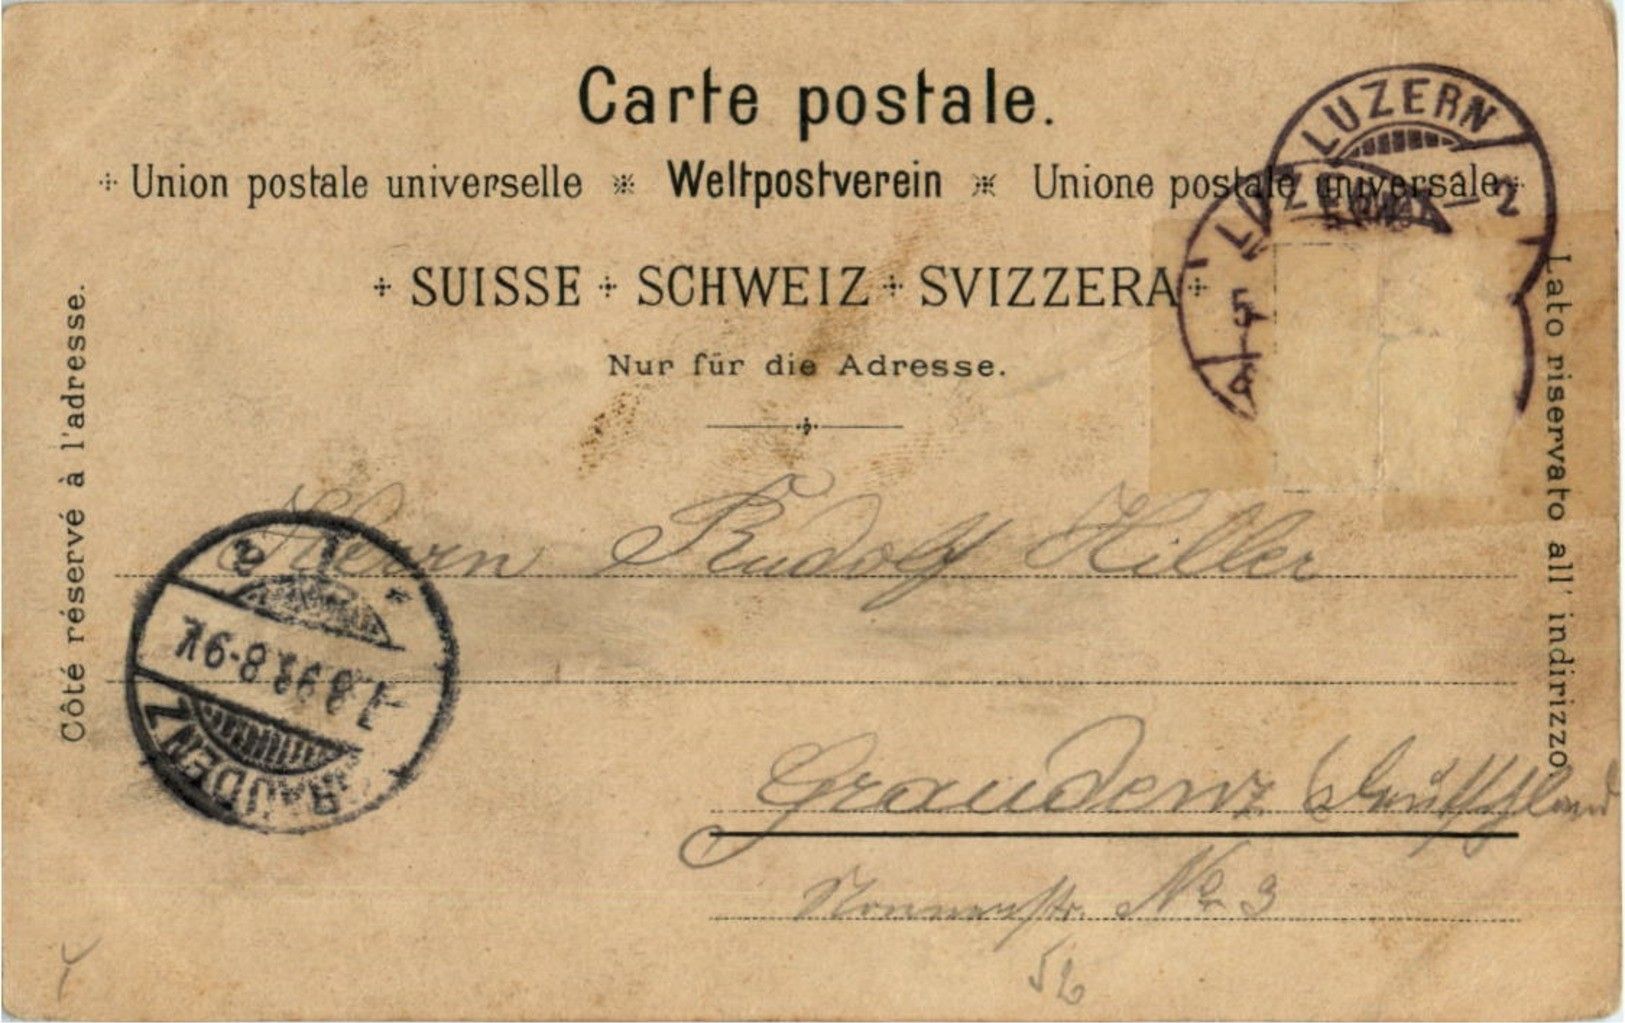 Carte postale.
Union postale universelle Weltpostverein Unione postale universale
SUISSE SCHWEIZ SVIZZERA
Nur für die Adresse.
Côté réservé à l'adresse.
Lato riservato all' indirizzo
LUZERN
2
LUZ
5
Herrn Rudolf Hiller
7.8.98.8-9V.
GRAUDENZ
Graudenz (Deutschland
Nonnenstr. No 3